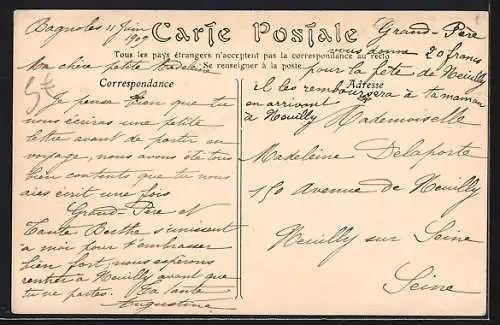 Bagnoles 11 Juin
Carte Postale
Tous les pays étrangers n'acceptent pas la correspondance au recto
Se renseigner à la poste.
Ma chère petite Madeleine
Correspondance
Je pense bien que tu
nous écriras une petite
lettre avant de partir en
voyage, nous avons été très
bien contents que tu nous
aies écrit une fois
Grand-Père et
Tante Berthe s'unissent
à moi pour t'embrasser
bien fort, nous espérons
rentrer à Neuilly avant que
tu ne partes. Ta tante
Augustine
Grand-Père
vous donne 20 francs
pour la fête de Neuilly
il les remboursera à ta maman
en arrivant
à Neuilly
Adresse
Mademoiselle
Madeleine Delaporte
150 Avenue de Neuilly
Neuilly sur Seine
Seine